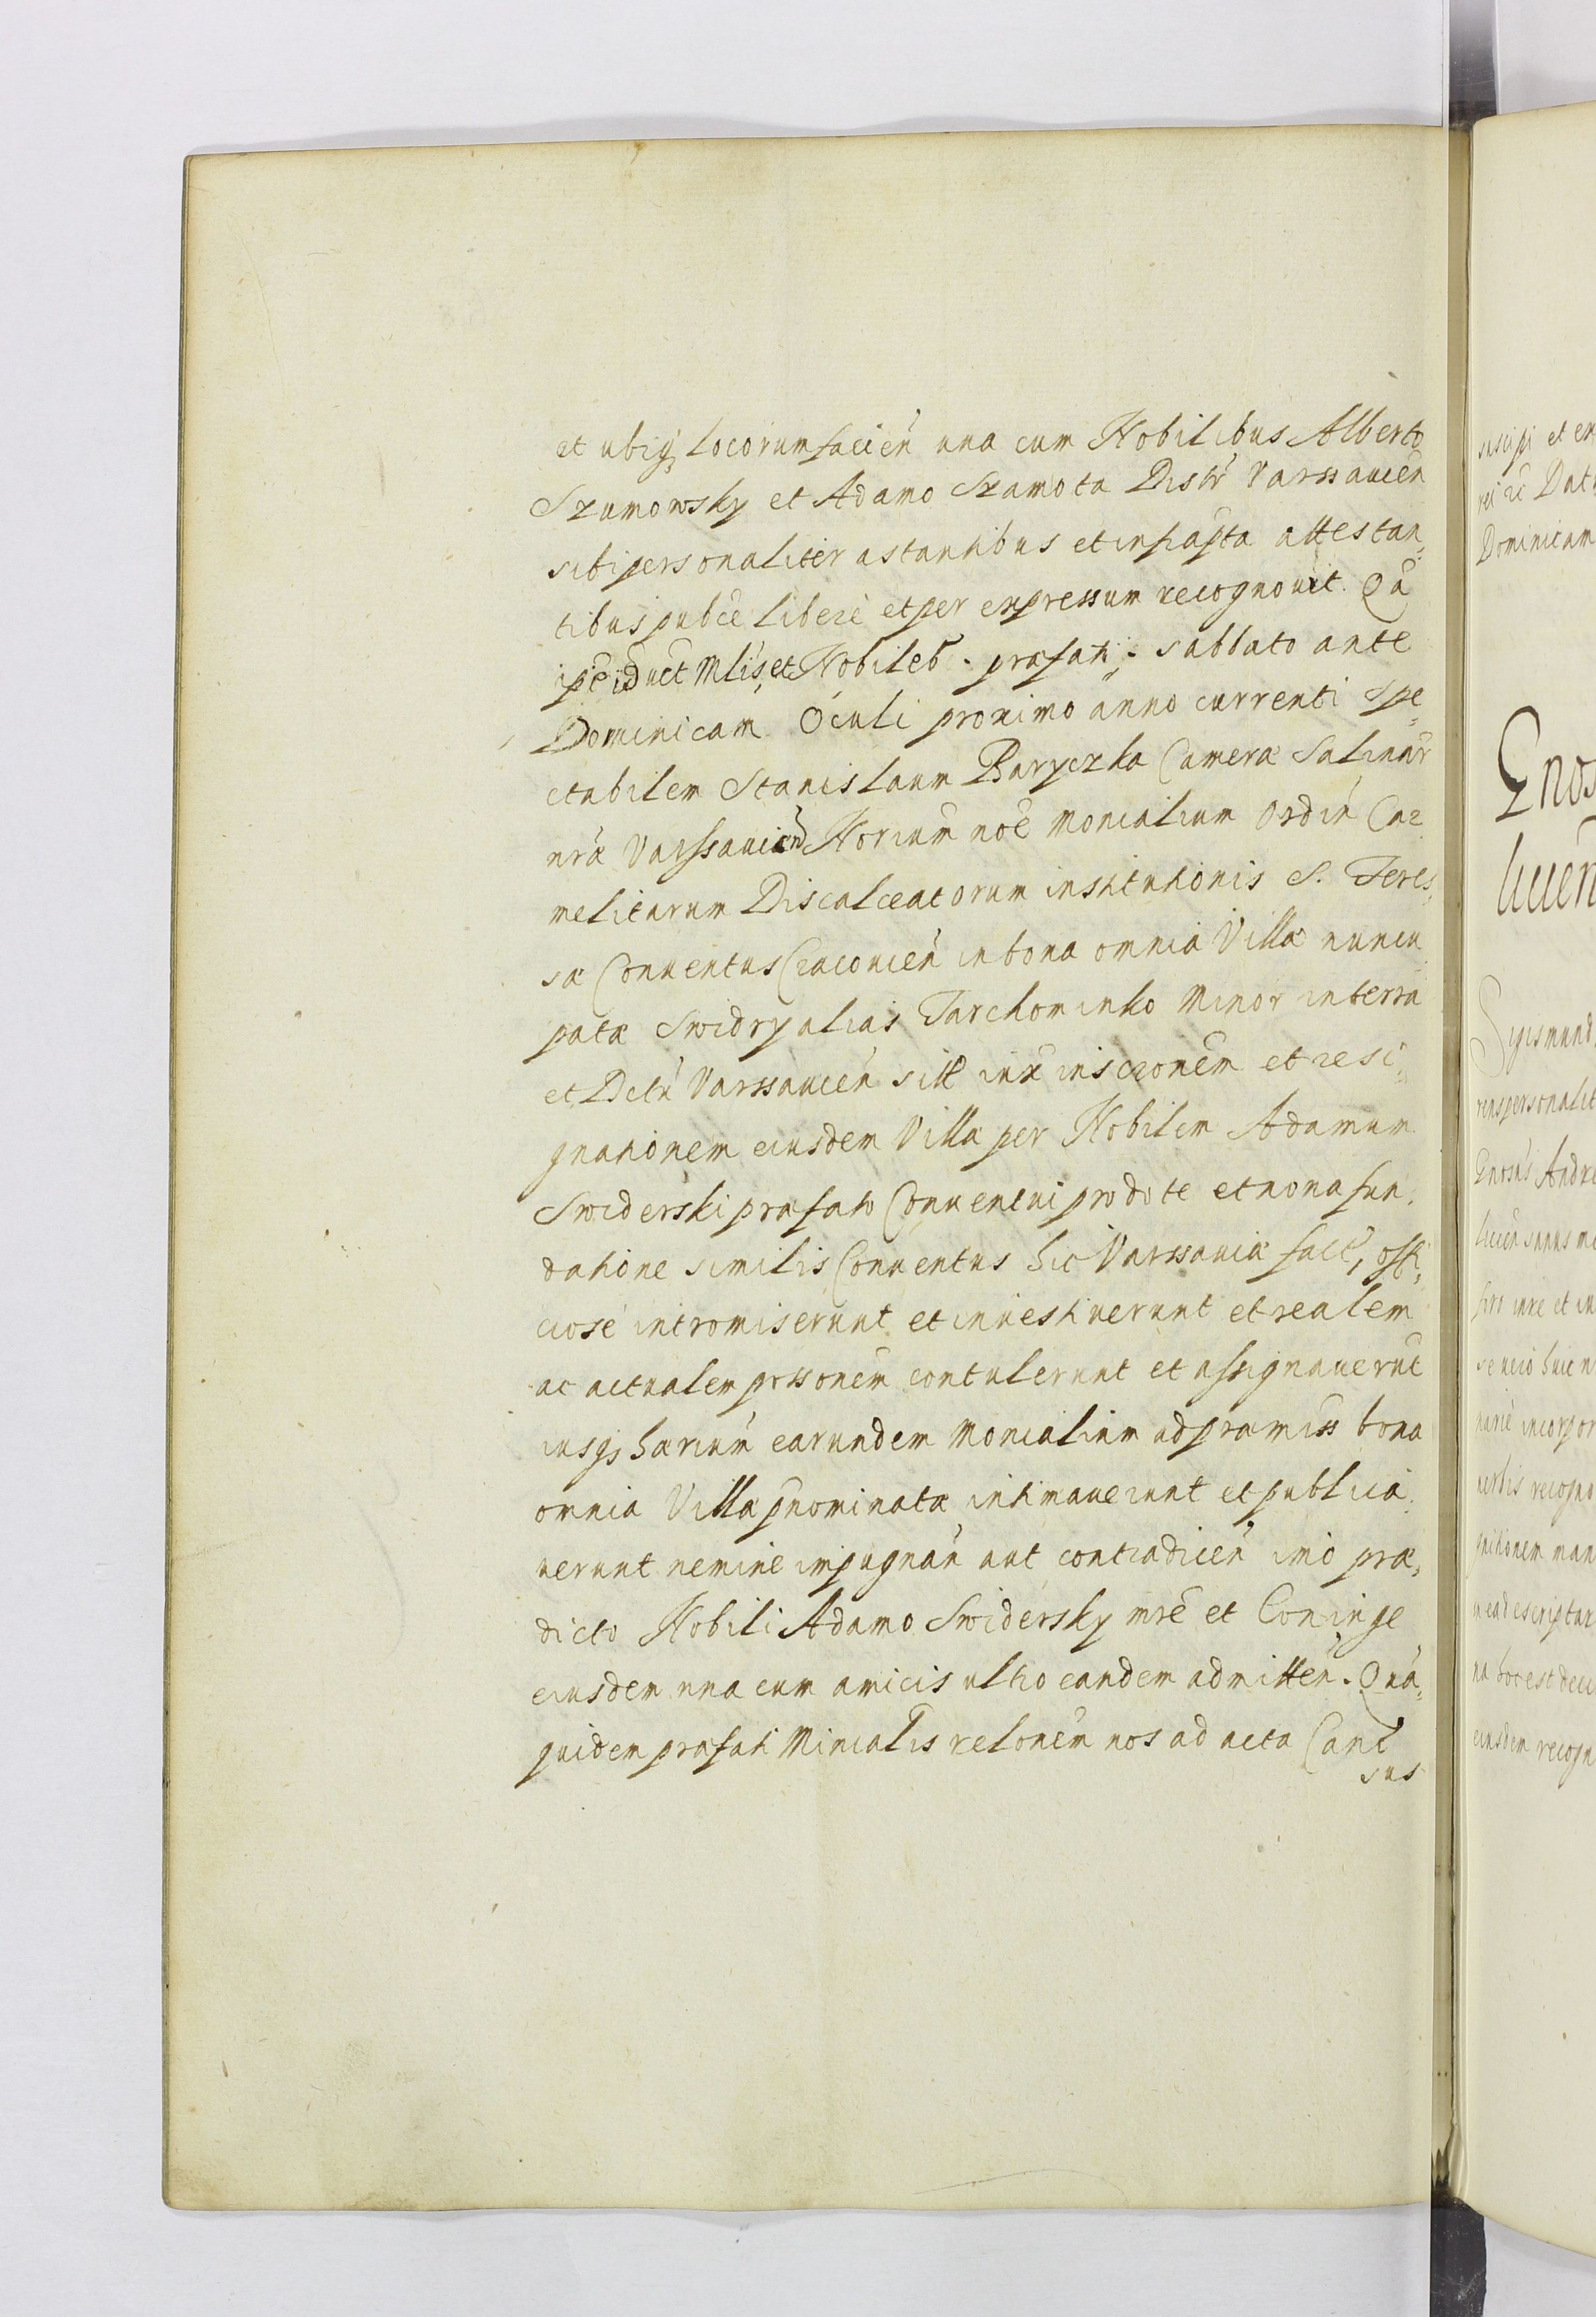 et ubiq₃ locorum facien̄ una cum Nobilibus Alberto
Szumowsky et Adamo Szamota Distr̄ Varssavien̄
sibi personaliter astantibus et infrapta attestan„
tibus pubce libere et per expressum recognovit. Qā
ipē id uct Mlis, et Nobileb. præfati. sabbato ante
Dominicam Oculi proximo anno currenti Spe„
ctabilem Stanislaum Baryczka Cameræ Salinar̄
nrǣ Varssavien̄ Noriūm noē Monialium Ordin̄ Car„
melitarum Discalceatorum institutionis S. Teres„
sæ Conventus Cracovien̄ in bona omnia Villæ nuncu„
patæ Swidry alias Tarchominko Minor in terra
et Dctu Varssavien̄ sitt iux inscronem et resi„
gnationem eiusdem Villæ per Nobilem Adamum
Swiderski præfato Conventui pro dote et nona fun„
datione similis Conventus hic Varssaviæ fact, offi„
ciose intromiserunt et investiverunt et realem
ac actualem possonem contulerunt et assignaverūt
iusq₃ hærium earundem Monialium ad præmiss bona
omnia Villæ pnominatæ intimaverunt et publica„
verunt nemine impugnan̄ aut contradicen̄ imo præ„
dicto Nobili Adamo Swidersky mrē et Coniuge
eiusdem una cum amicis ultro eandem admitten̄. Quā„
quidem præfati Minialis relonem nos ad acta Canc
sus
suscipi et
Dat
Dominicam
Gnos
Sigismund
Gnosus Andre